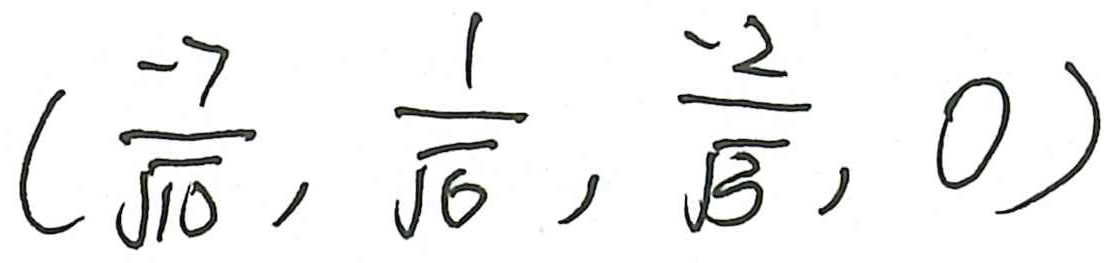 (-7/√10, 1/√6, -2/√3, 0)